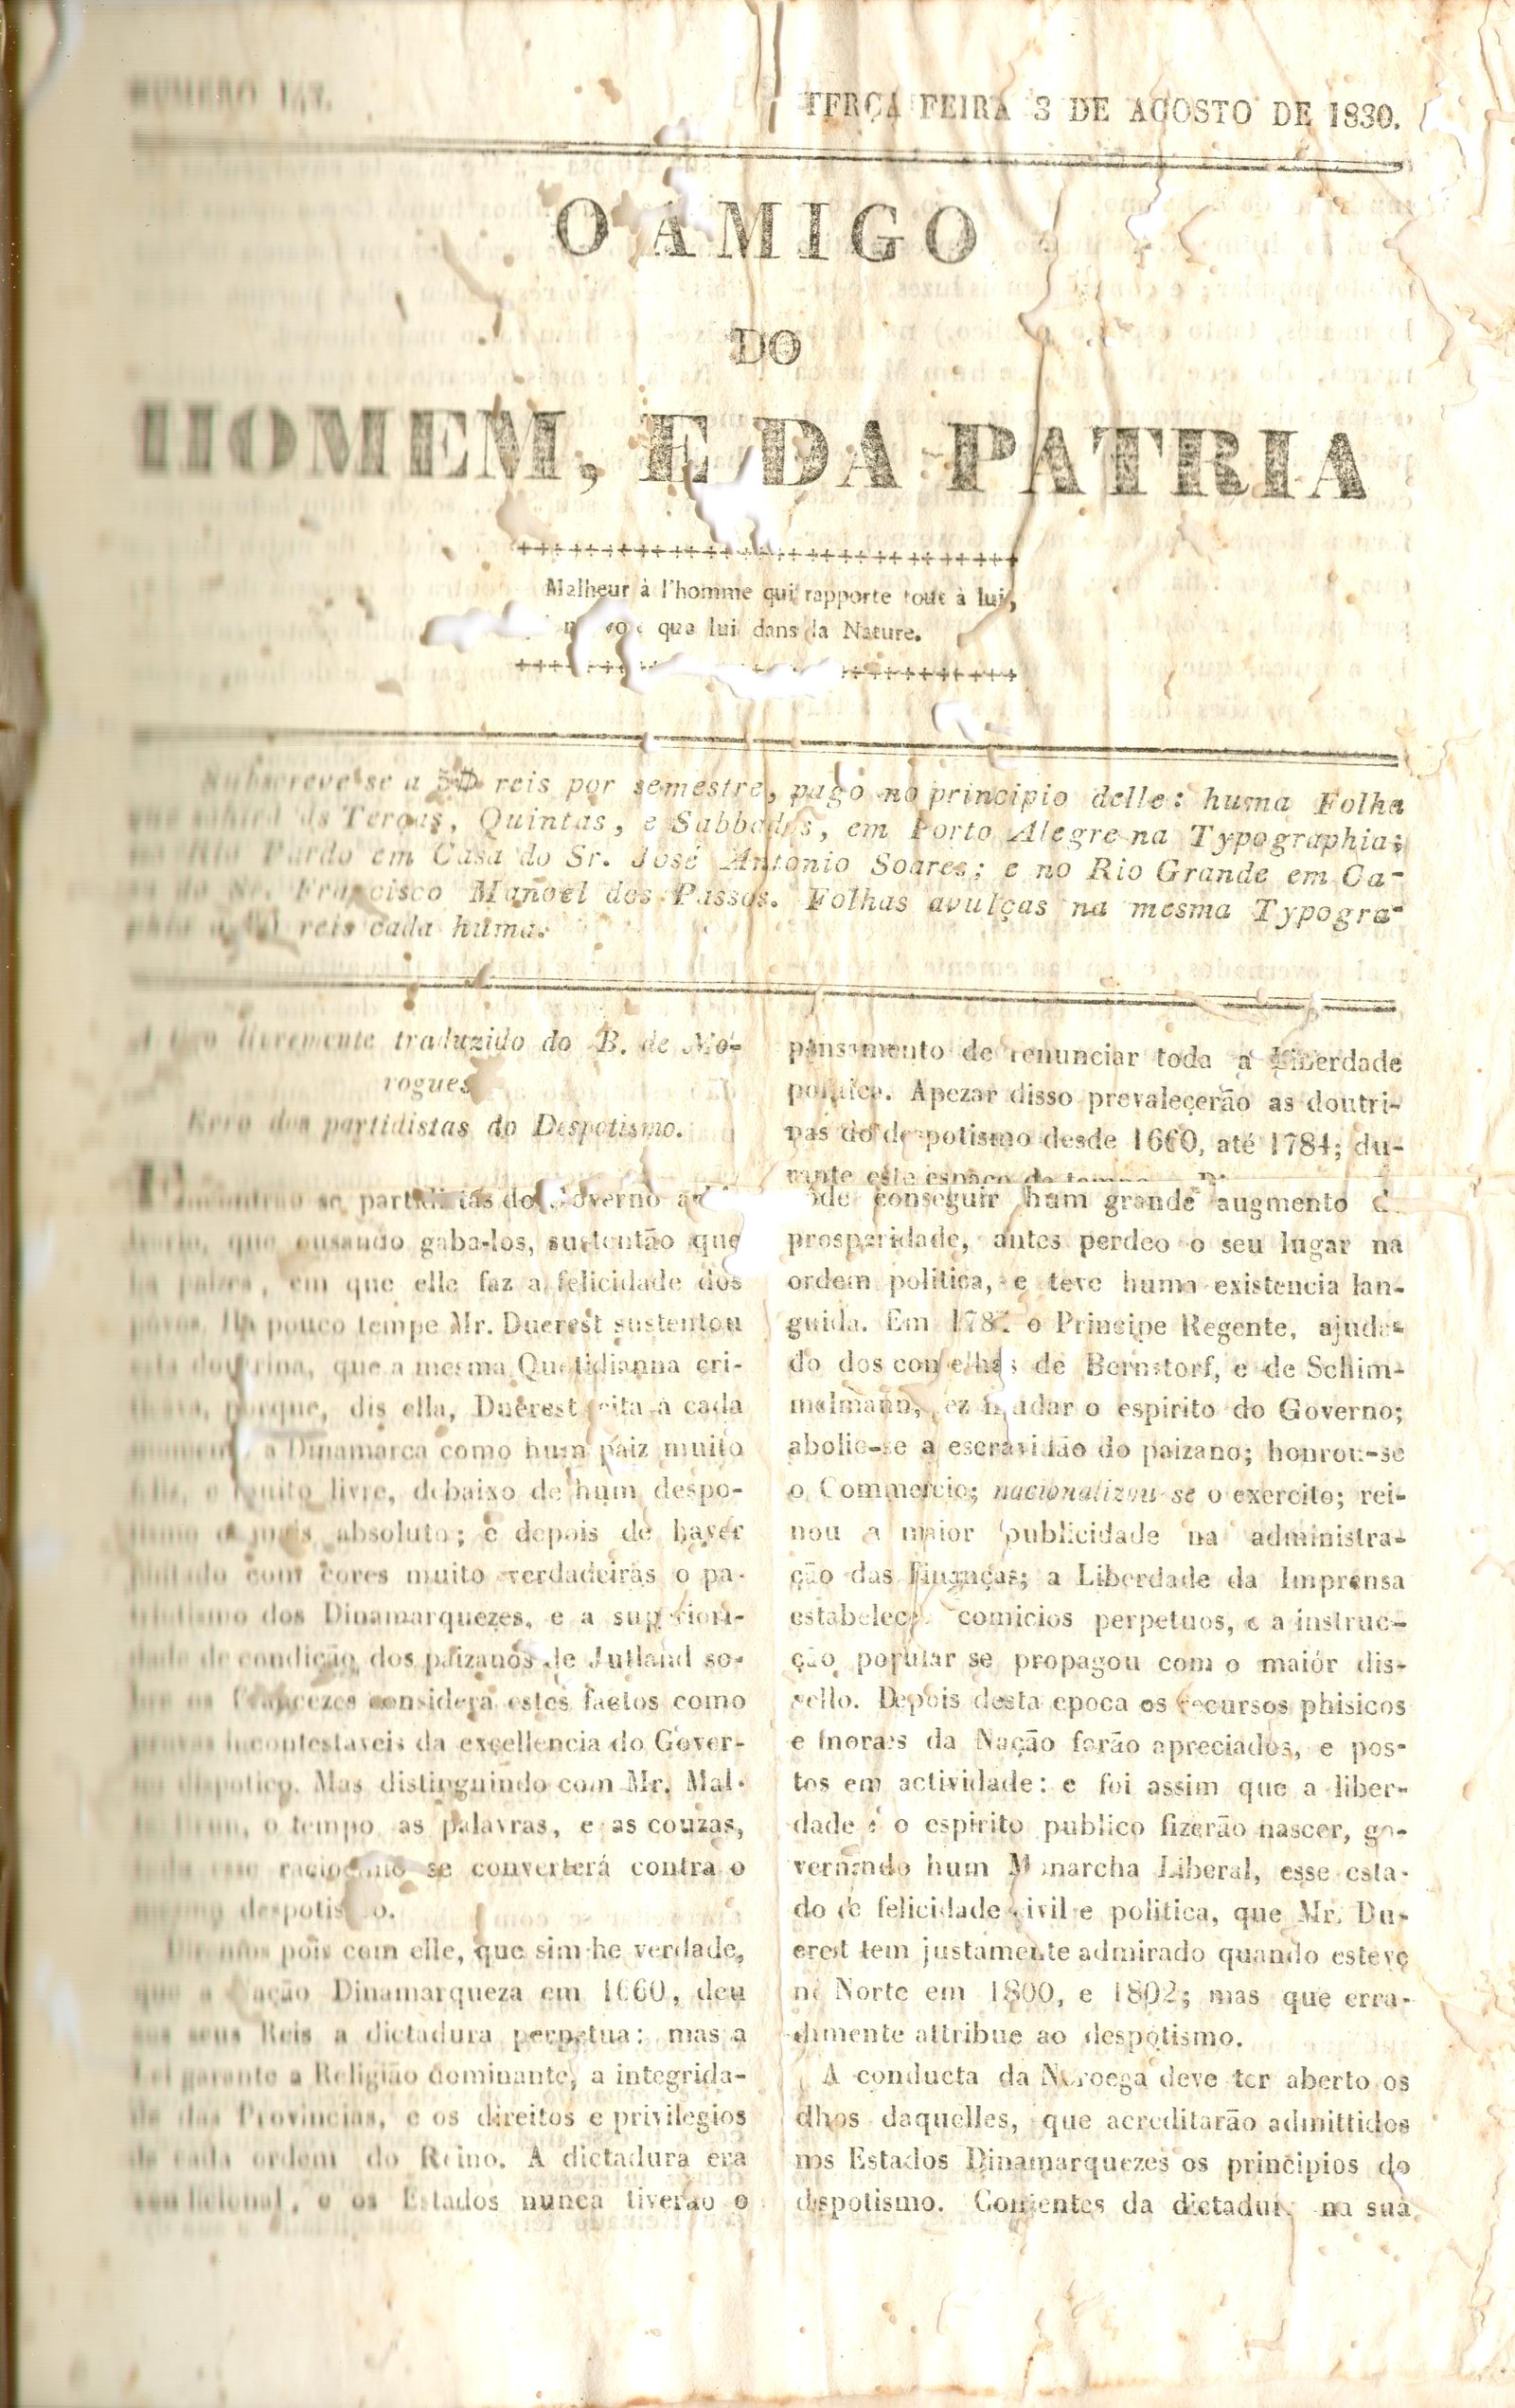 NUMERO 147.
TERÇA FEIRA 3 DE AGOSTO DE 1830.
O AMIGO
DO
HOMEM, E DA PATRIA
Malheur à l'homme qui rapporte tout à lui,
que lui dans la Nature.
Subscreve-se a reis por semestre, pago no principio delle: huma Folha
que sahirá ás Terças, Quintas, e Sabbados, em Porto Alegre na Typographia;
no Rio Pardo em Casa do Sr. José Antonio Soares; e no Rio Grande em Ca-
sa do Sr. Francisco Manoel dos Passos. Folhas avulças na mesma Typogra-
phia a reis cada huma.
livremente traduzido do B. de Mo-
rogues
Erro dos partidistas do Despotismo.
Encontrão se partidistas do Governo
que ousando gaba-los, sustentão que
ha paizes, em que elle faz a felicidade dos
povos. Ha pouco tempe Mr. Ducrest sustentou
esta doutrina, que a mesma Quotidianna cri-
porque, dis ella, Ducrest cita a cada
momento a Dinamarca como hum paiz muito
feliz, e muito livre, debaixo de hum despo-
tismo o mais absoluto; e depois de haver
pintado com cores muito verdadeiras o pa-
triotismo dos Dinamarquezes, e a superiori-
dade de condição dos paizanos de Jutland so-
bre os francezes considera estes factos como
provas incontestaveis da excellencia do Gover-
no dispotico. Mas distinguindo com Mr. Mal-
te Brun, o tempo as palavras, e as couzas,
todo esse raciocinio se converterá contra o
mesmo despotismo.
pois com elle, que sim he verdade,
que a Nação Dinamarqueza em 1660, deu
aos seus Reis a dictadura perpetua: mas a
Lei garante a Religião dominante, a integrida-
de das Provincias, e os direitos e privilegios
de cada ordem do Reino. A dictadura era
condicional, e os Estados nunca tiverão o
pensamento de renunciar toda a Liberdade
politica. Apezar disso prevalecerão as doutri-
nas do despotismo desde 1660, até 1784; du-
rante este espaço de tempo
pôde conseguir hum grande augmento de
prosperidade, antes perdeo o seu lugar na
ordem politica, e teve huma existencia lan-
guida. Em o Principe Regente, ajuda-
do dos conselhos de Bernstorf, e de Schim-
melmann, fez mudar o espirito do Governo;
abolio-se a escravidão do paizano; honrou-se
o Commercio; nacionalizou-se o exercito; rei-
nou a maior publicidade na administra-
ção das Finanças; a Liberdade da Imprensa
estabelece comicios perpetuos, e a instruc-
ção popular se propagou com o maiór dis-
vello. Depois desta epoca os recursos phisicos
e moraes da Nação forão apreciados, e pos-
tos em actividade: e foi assim que a liber-
dade e o espirito publico fizerão nascer, go-
vernando hum Monarcha Liberal, esse esta-
do de felicidade civil e politica, que Mr. Du-
crest tem justamente admirado quando esteve
no Norte em 1800, e 1802; mas que erra-
damente attribue ao despotismo.
A conducta da Noroega deve ter aberto os
olhos daquelles, que acreditarão admittidos
nos Estados Dinamarquezes os principios do
dispotismo. Contentes da dictadura na sua